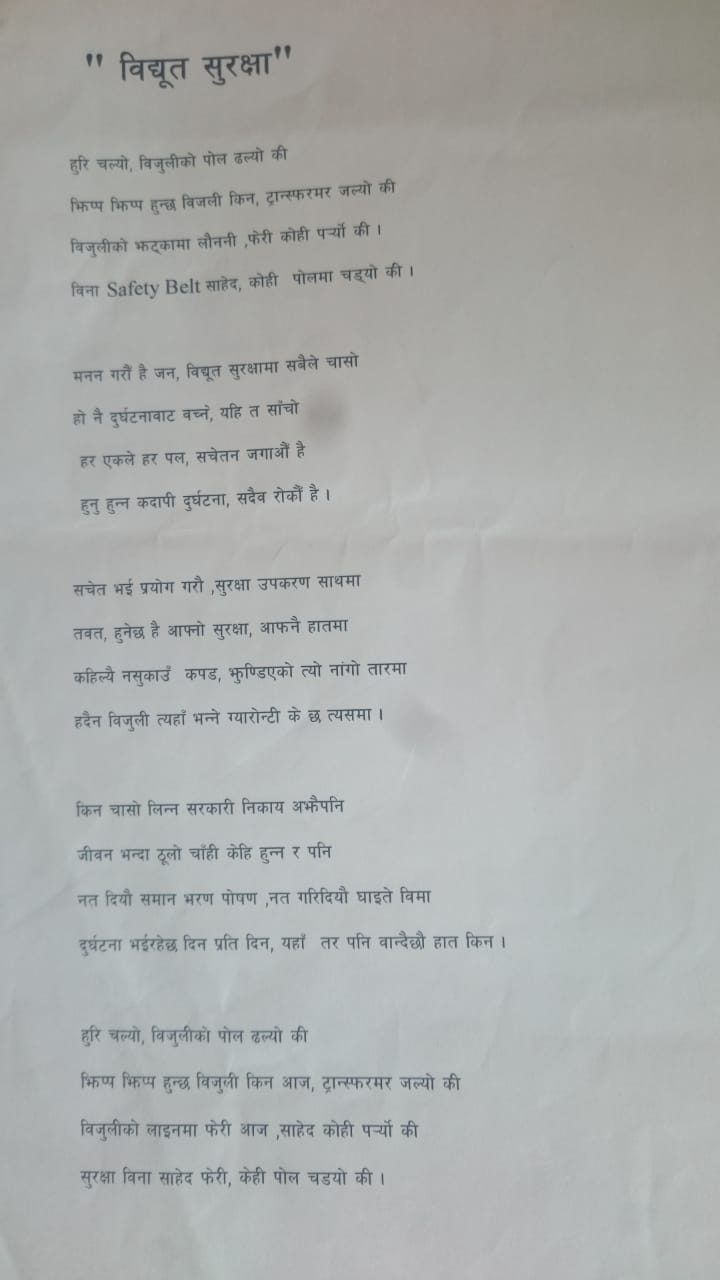 " विद्यूत सुरक्षा"
हुरि चल्यो, विजुलीको पोल ढल्यो की
झिप्प झिप्प हुन्छ विजली किन, ट्रान्सफरमर जल्यो की
विजुलीको झट्कामा लौननी ,फेरी कोही पर्‍यो की ।
विना Safety Belt साहेद, कोही पोलमा चड्यो की ।
मनन गरौं है जन, विद्यूत सुरक्षामा सबैले चासो
हो नै दुर्घटनावाट वच्ने, यहि त साँचो
हर एकले हर पल, सचेतन जगाऔं है
हुनु हुन्न कदापी दुर्घटना, सदैव रोकौं है ।
सचेत भई प्रयोग गरौ ,सुरक्षा उपकरण साथमा
तवत, हुनेछ है आफ्नो सुरक्षा, आफनै हातमा
कहिल्यै नसुकाउँ कपड, झुण्डिएको त्यो नांगो तारमा
हदैन विजुली त्यहाँ भन्ने ग्यारोन्टी के छ त्यसमा ।
किन चासो लिन्न सरकारी निकाय अझैपनि
जीवन भन्दा ठूलो चाँही केहि हुन्न र पनि
नत दियौ समान भरण पोषण ,नत गरिदियौ घाइते विमा
दुर्घटना भईरहेछ दिन प्रति दिन, यहाँ तर पनि वान्दैछौ हात किन ।
हुरि चल्यो, विजुलीको पोल ढल्यो की
झिप्प झिप्प हुन्छ विजुली किन आज, ट्रान्सफरमर जल्यो की
विजुलीको लाइनमा फेरी आज ,साहेद कोही पर्‍यो की
सुरक्षा विना साहेद फेरी, केही पोल चडयो की ।